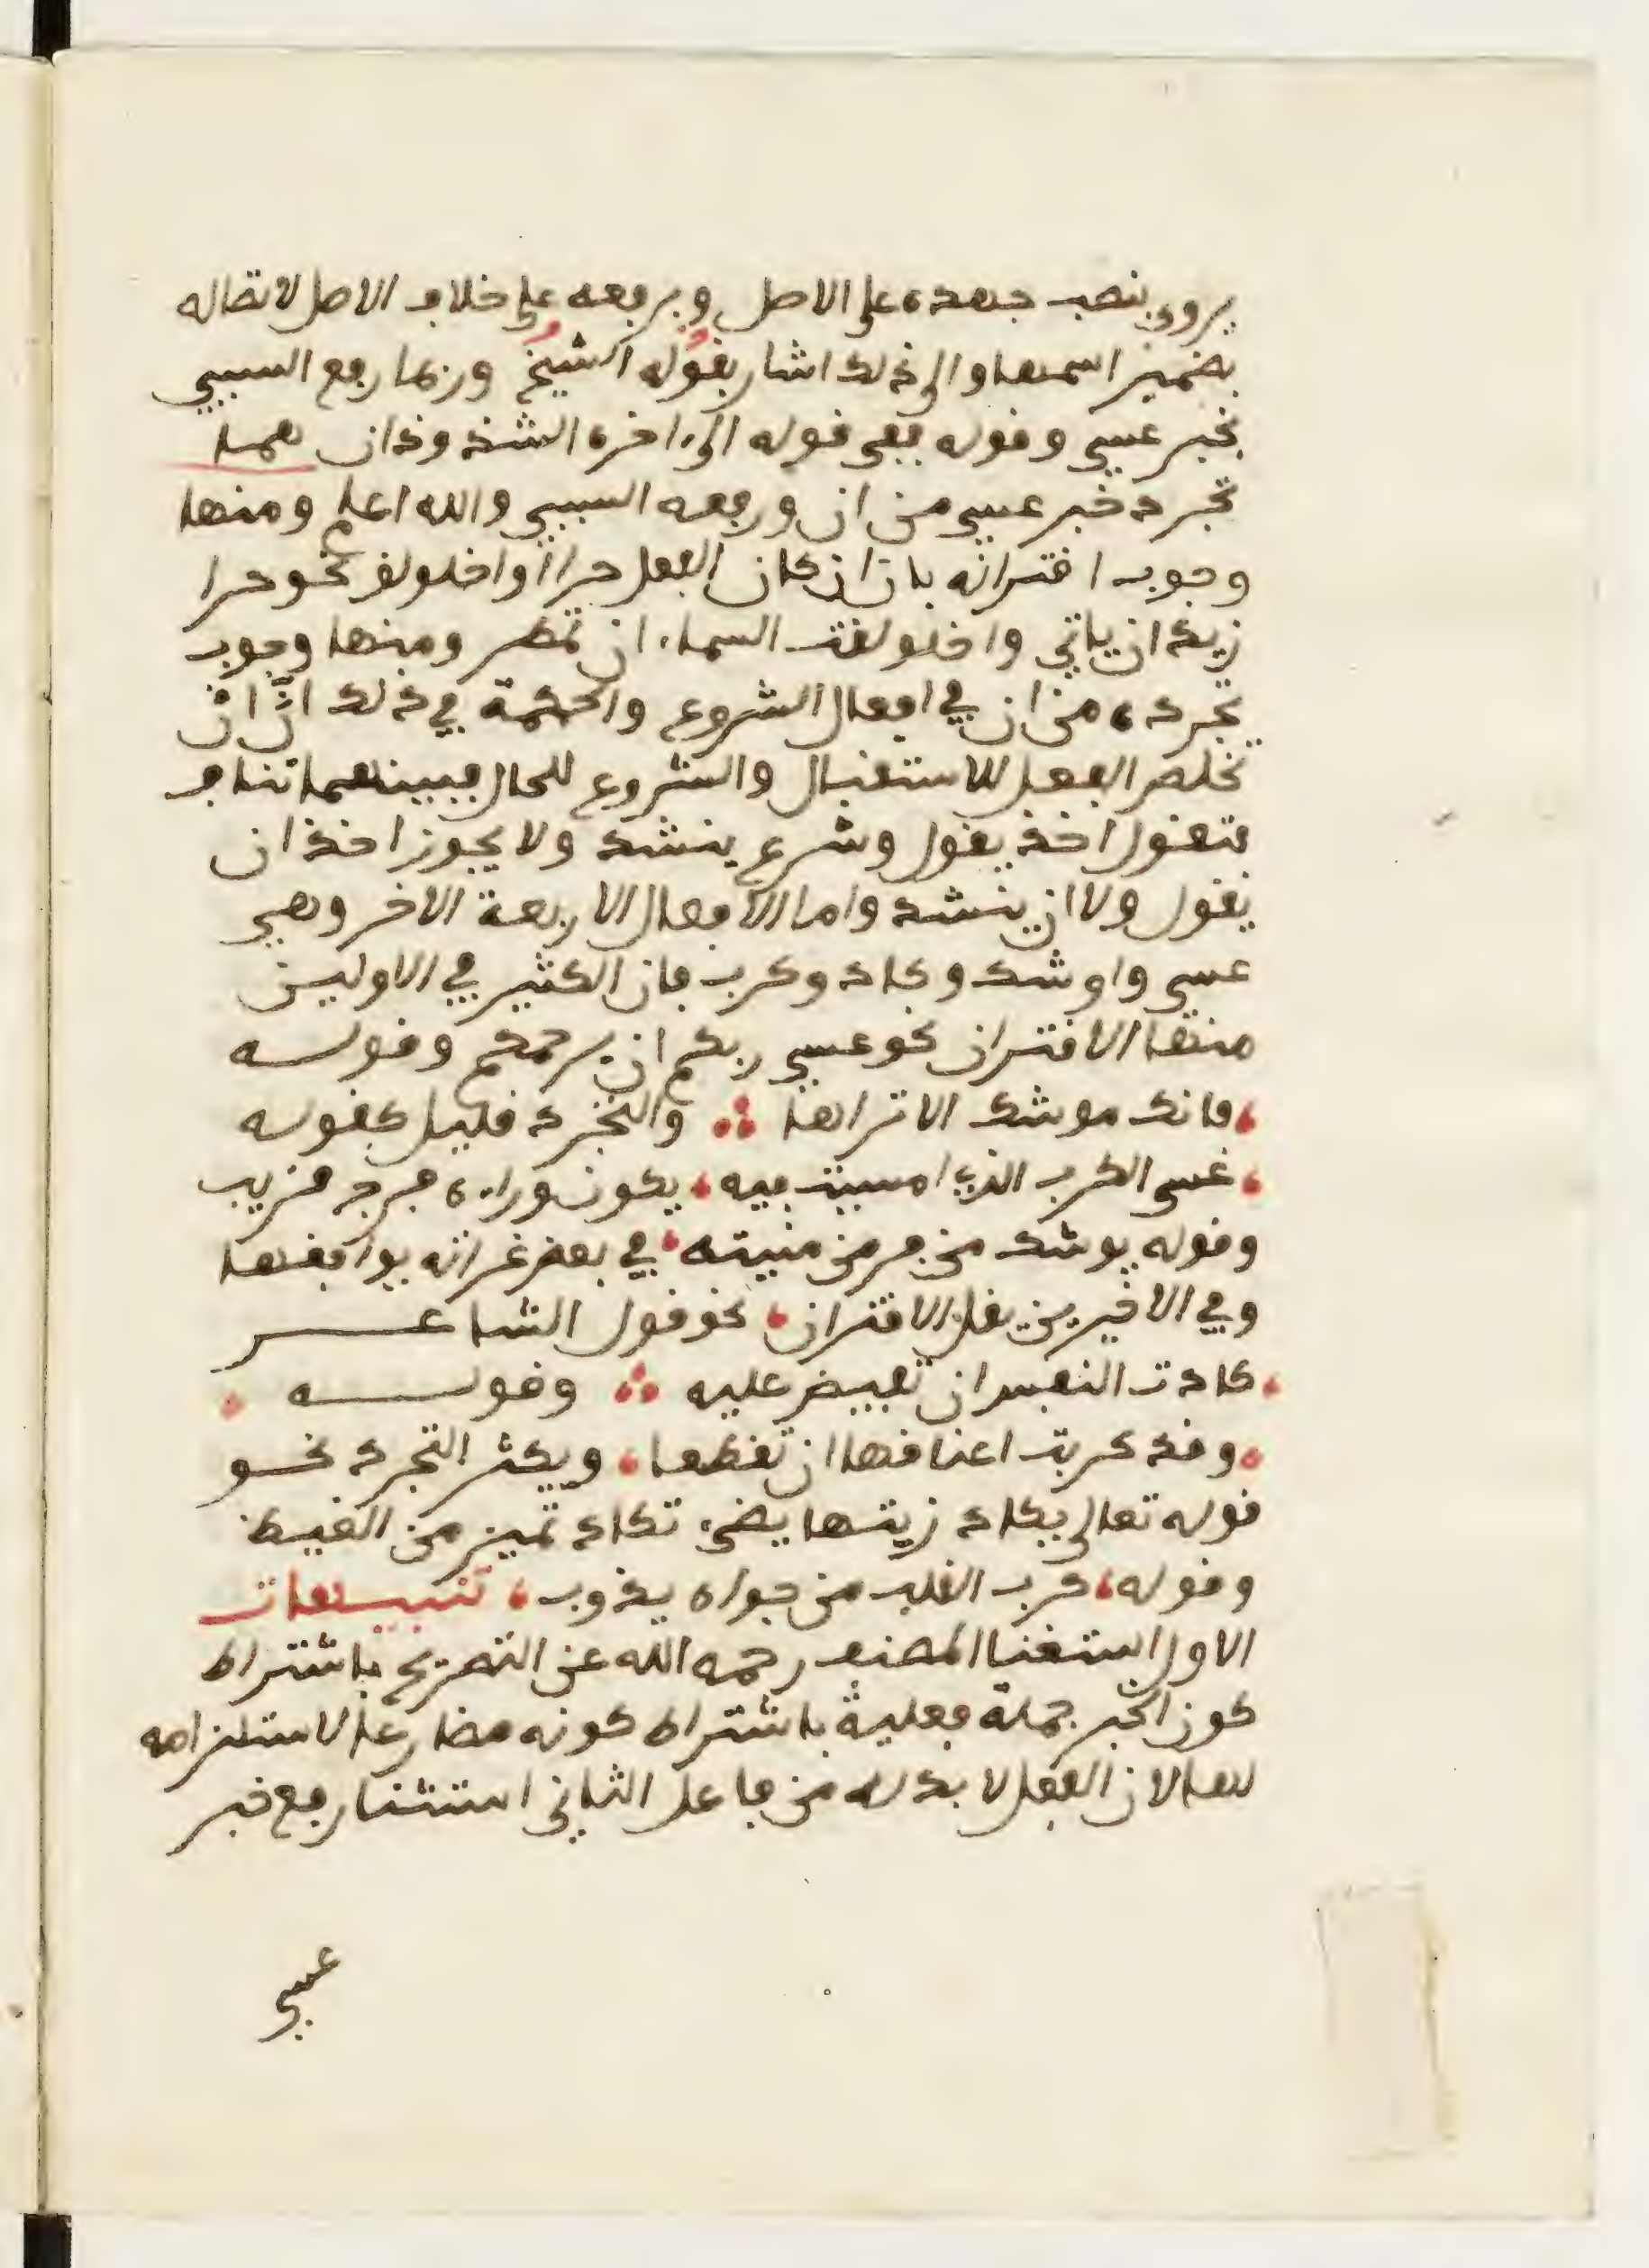 يروى بنصب جهده على الاصل وبرفعه على خلاف الاصل لاتصاله
بضمير اسمها والى ذلك اشار بقوله الشيخ وربما رفع السببي
بخبر عسى وقوله ففي قوله الى اخره الشذوذان هما
تجرد خبر عسى من ان ورفعه السببي والله اعلم ومنها
وجوب اقترانه بان ان كان الفعل حرا او اخلولق نحو حرا
زيد ان ياتي واخلولقت السماء ان تمطر ومنها وجوب
تجرده من ان في افعال الشروع والحكمة في ذلك انّ انْ
تخلص الفعل للاستقبال والشروع للحال فبينهما تناف
فتقول اخذ يقول وشرع ينشد ولا يجوز اخذ ان
يقول ولا ان ينشد واما الافعال الاربعة الاخر وهي
عسى واوشك وكاد وكرب فان الكثير في الاولين
منها الاقتران نحو عسى ربكم ان يرحمكم وقوله
فانك موشك الا تراها والتجرد قليل كقوله
عسى الكرب الذي امسيت فيه يكون وراءه فرج قريب
وقوله يوشك من فر من منيته في بعض غراته يوافقها
وفي الاخيرين يقل الاقتران نحو قول الشاعر
كادت النفس ان تفيض عليه وقوله
وقد كربت اعناقها ان تقطعا ويكثر التجرد نحو
قوله تعالى يكاد زيتها يضيء تكاد تميز من الغيظ
وقوله كرب القلب من جواه يذوب تنبيهات
الاول استغنا المصنف رحمه الله عن التصريح باشتراط
كون الخبر جملة فعلية باشتراط كونه مضارعا لاستلزامه
لها لان الفعل لا بد له من فاعل الثاني استثنا رفع خبر
عسى